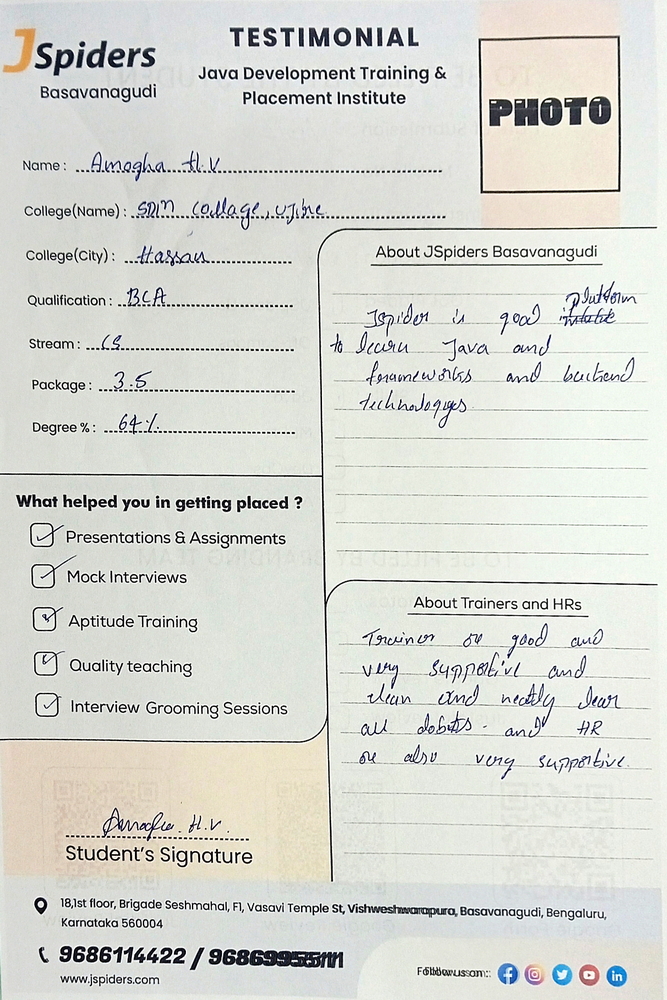 JSpiders
Basavanagudi
TESTIMONIAL
Java Development Training &
Placement Institute
PHOTO
Name : Amogha H.V
College(Name) : SDM Collage, Ujire
College(City) : Hassan
Qualification : BCA
Stream : CS
Package : 3.5
Degree % : 64%
What helped you in getting placed ?
Presentations & Assignments
Mock Interviews
Aptitude Training
Quality teaching
Interview Grooming Sessions
About JSpiders Basavanagudi
platform
Jspider is good
to learn Java and
frameworks and backend
technologyes
About Trainers and HRs
Trainer are good and
very supportive and
clean and neatly clear
all dobuts. and HR
are also very supportive.
Amogha. H.V.
Student's Signature
18,1st floor, Brigade Seshmahal, F1, Vasavi Temple St, Vishweshwarapura, Basavanagudi, Bengaluru,
Karnataka 560004
9686114422 /
www.jspiders.com
Follow us on :